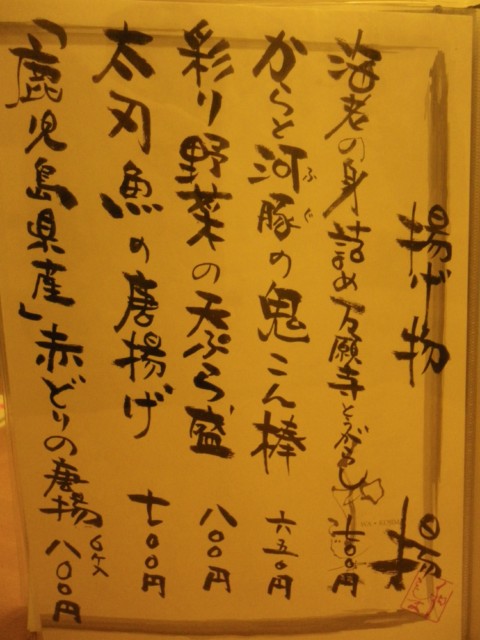 揚げ物
揚
海老の身詰め万願寺とうがらし 七〇〇円
からと河豚の鬼こん棒 六五〇円
ふぐ
彩り野菜の天ぷら盛 八〇〇円
太刃魚の唐揚げ 七〇〇円
「鹿児島県産」赤どりの唐揚 八〇〇円